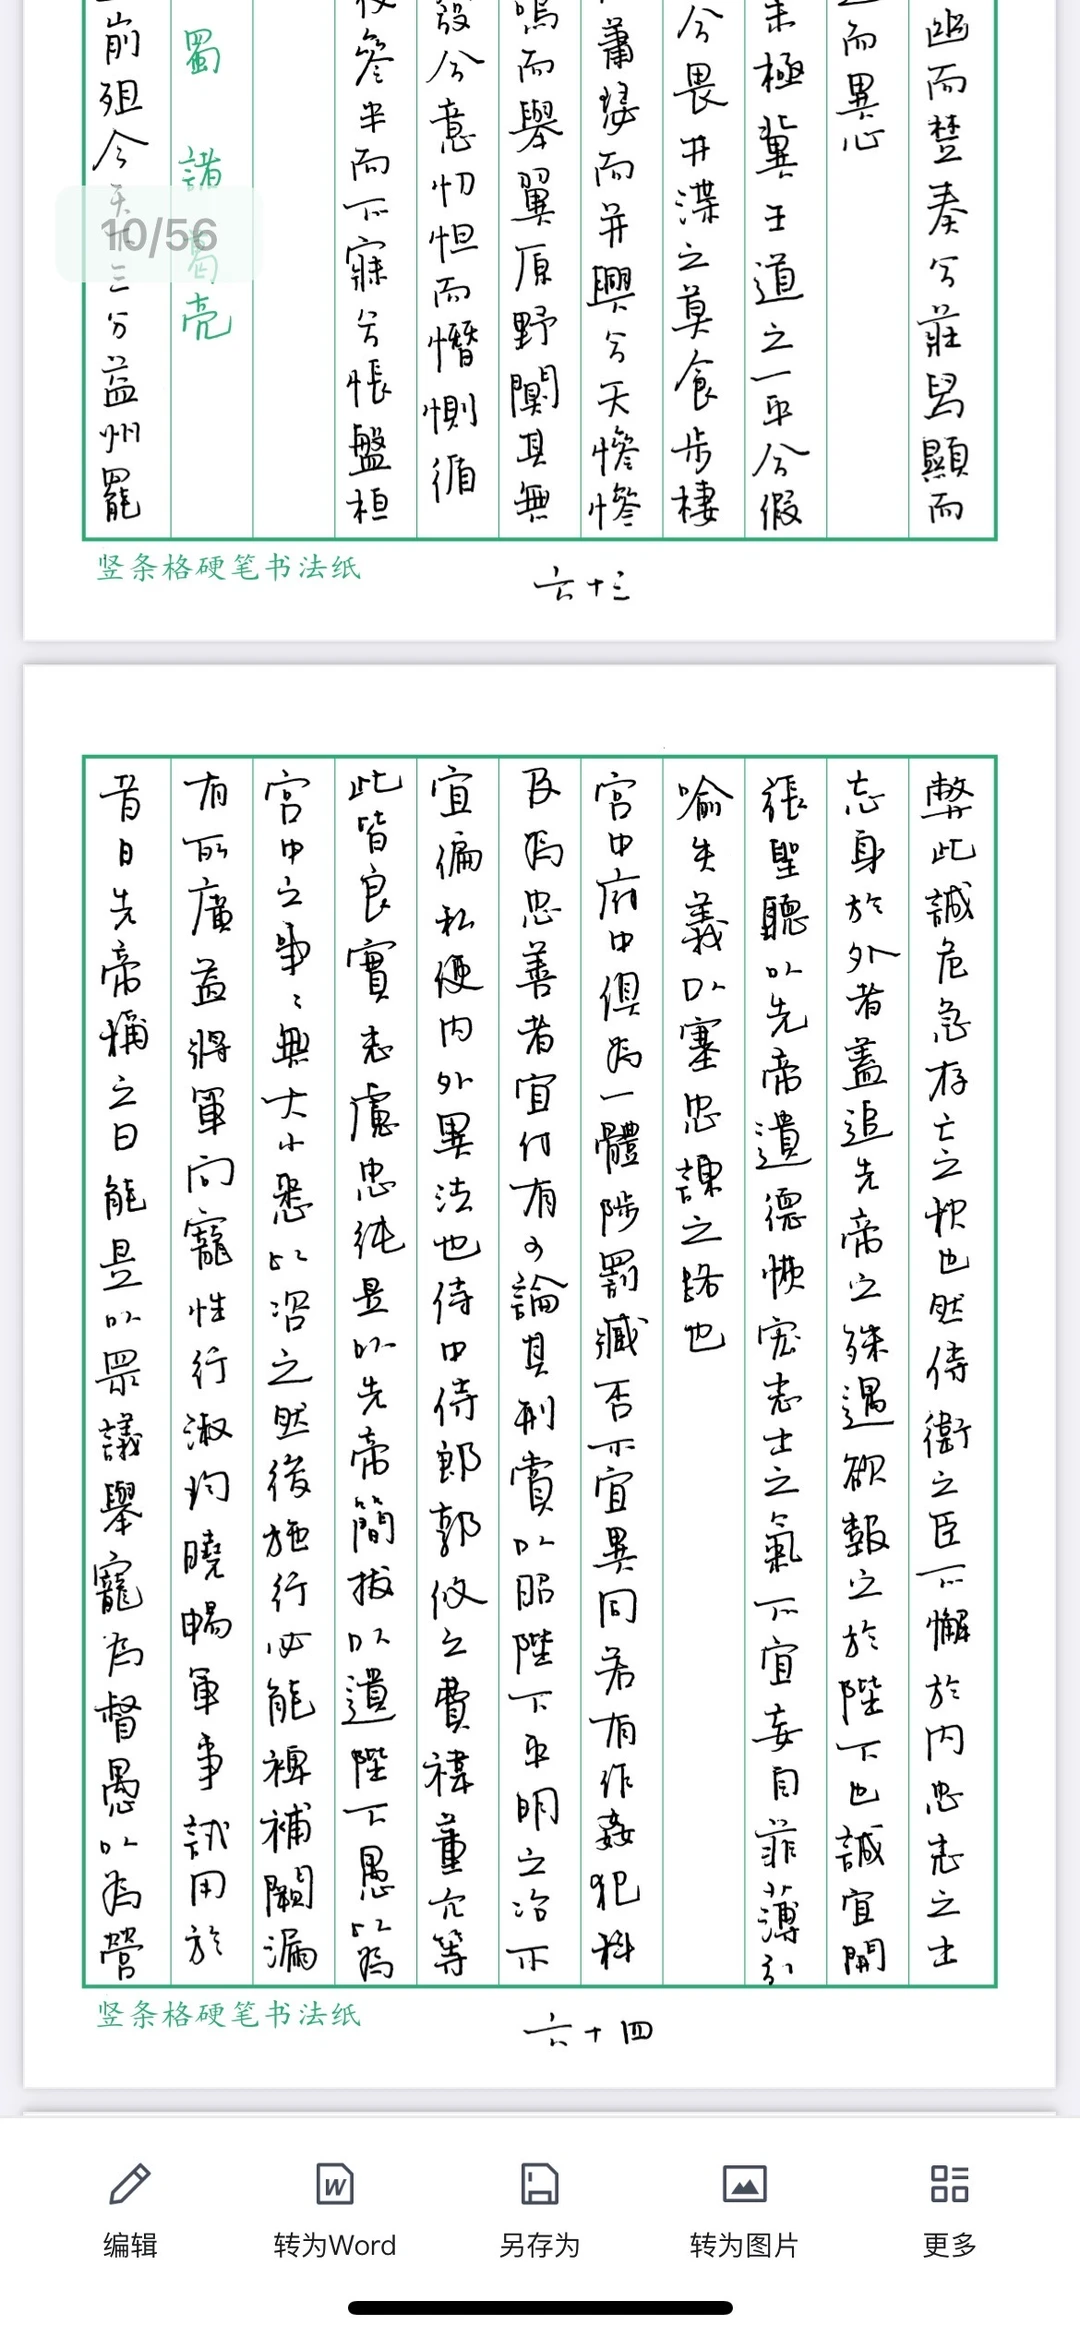 幽而楚奏兮莊舄顯而
而異心
未極冀王道之一平兮假
兮畏井渫之莫食步棲
蕭瑟而并興兮天慘慘
鳴而舉翼原野闃其無
發兮意忉怛而憯惻循
夜參半而不寐兮悵盤桓
蜀 諸葛亮
崩殂今天下三分益州罷
竖条格硬笔书法纸
六十三
10/56
弊此誠危急存亡之秋也然侍衛之臣不懈於内忠志之士
忘身於外者蓋追先帝之殊遇欲報之於陛下也誠宜開
張聖聽以光先帝遺德恢宏志士之氣不宜妄自菲薄引
喻失義以塞忠諫之路也
宮中府中俱為一體陟罰臧否不宜異同若有作姦犯科
及為忠善者宜付有司論其刑賞以昭陛下平明之治不
宜偏私使内外異法也侍中侍郎郭攸之費禕董允等
此皆良實志慮忠純是以先帝簡拔以遺陛下愚以為
宮中之事〻無大小悉以咨之然後施行必能裨補闕漏
有所廣益將軍向寵性行淑均曉暢軍事試用於
昔日先帝稱之曰能是以眾議舉寵為督愚以為營
竖条格硬笔书法纸
六十四
编辑
转为Word
另存为
转为图片
更多